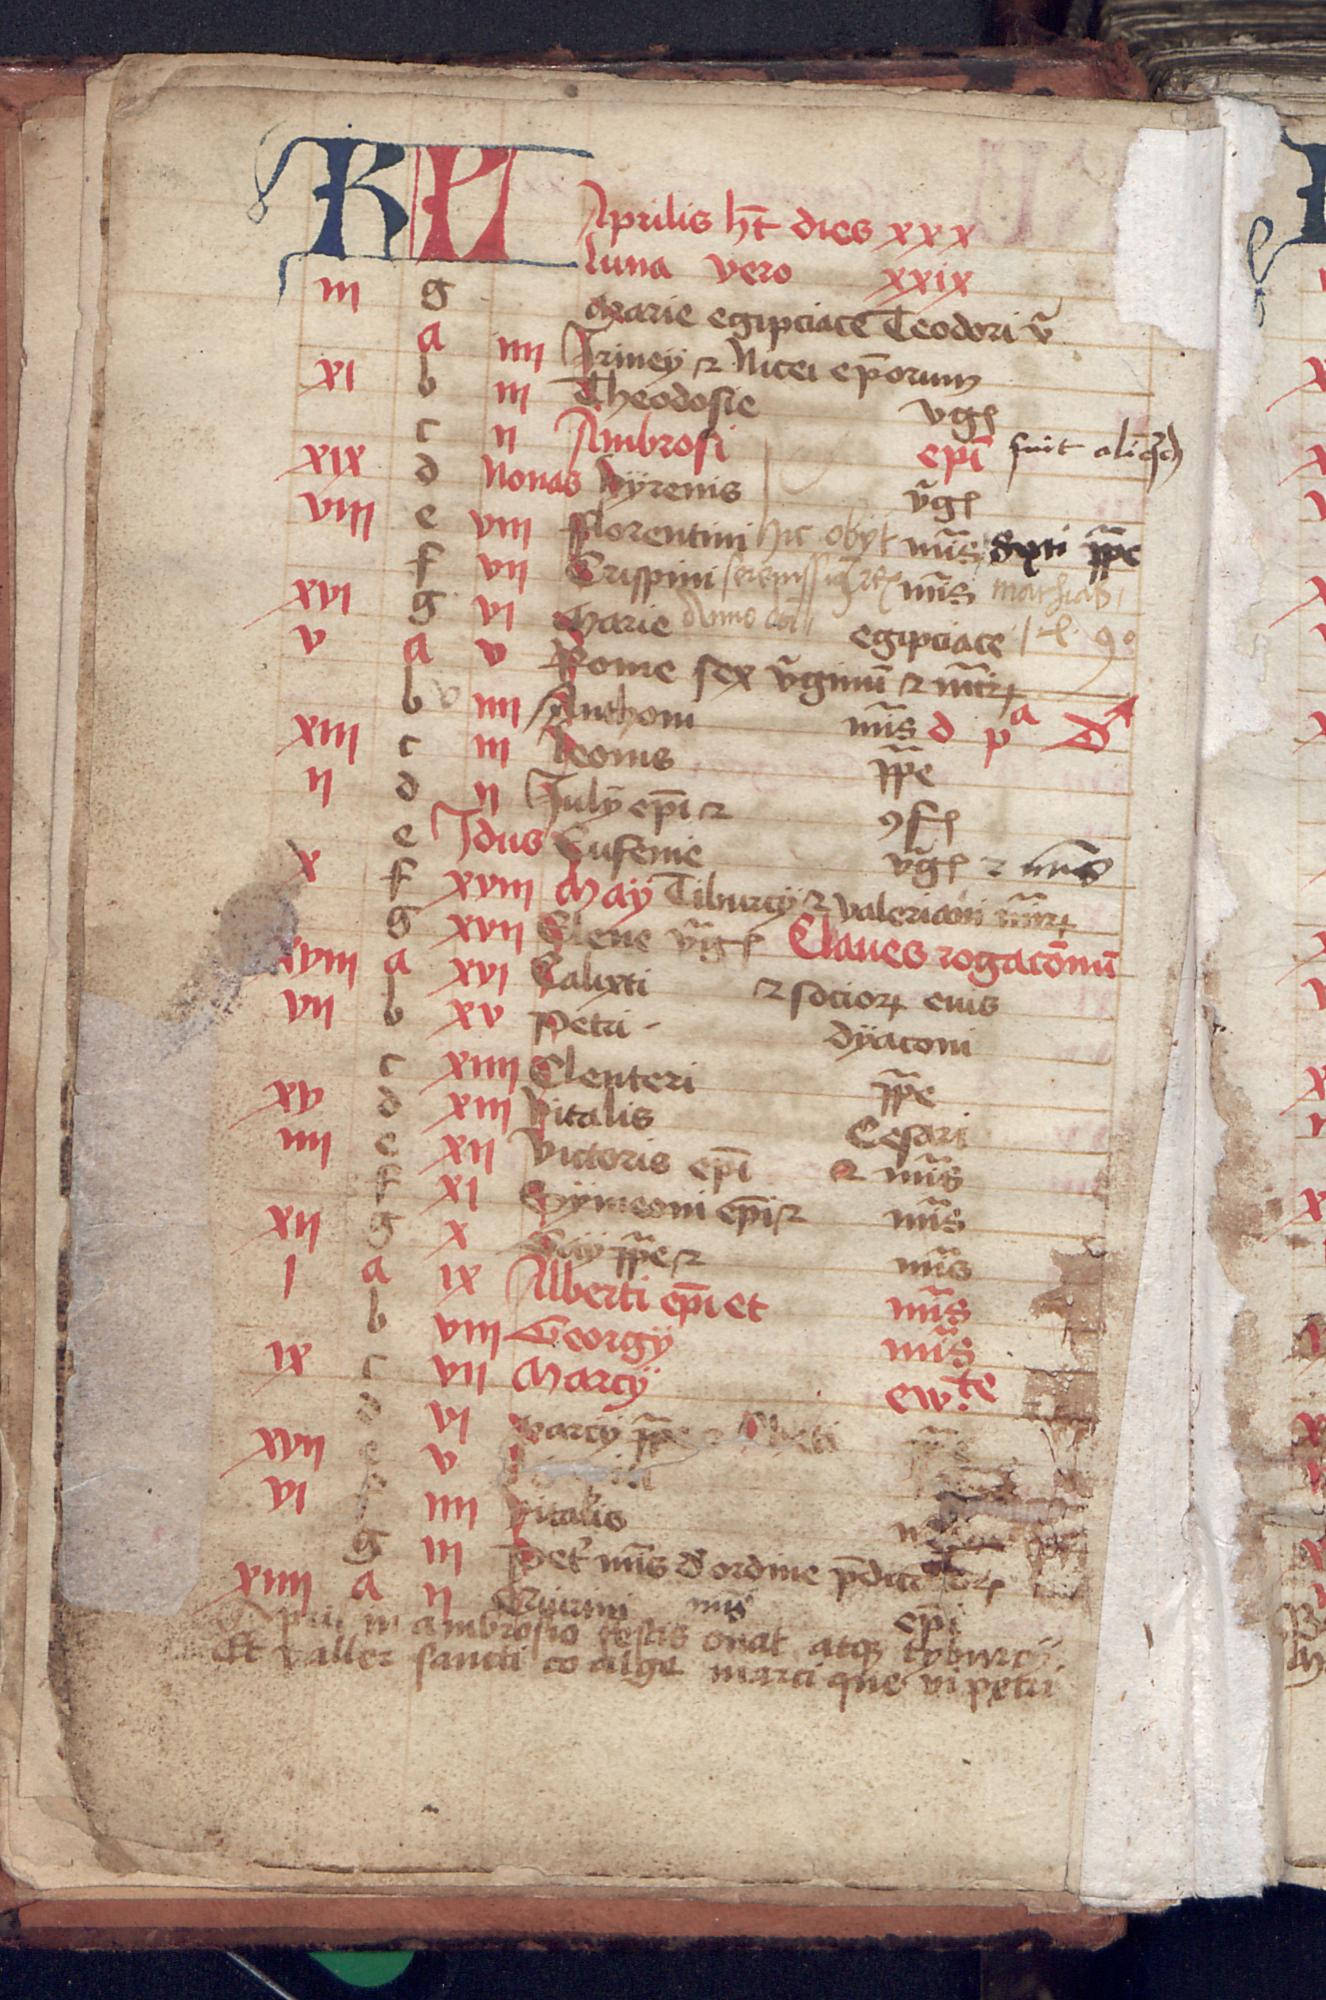 KL Aprilis ht dies xxx
luna vero xxix
iii g Marie egipciace Teodori v
a iiii Iriney et Nicei eporum
xi b iii Theodosie vg
c ii Ambrosi epi fuit
xix d Nonas Hyrenis vg
viii e viii Florentini hic obyt mris Sixti ppe
f vii Crispini mris mathias
xvi g vi Marie Anno egipciace
v a v Rome sex vginu et mr
b iiii Anthoni mris d pa
xiii c iii Leonis ppe
ii d ii July epi et 9f
e Idus Eufemie vg et mris
x f xviii May Tiburcy et Valeriani mr
g xvii Elene vg Claues rogaconu
xviii a xvi Calixti et socior eius
vii b xv Petri dyaconi
c xiiii Eleuteri ppe
xv d xiii Vitalis Cesari
iiii e xii Victoris epi et mris
f xi Symeoni epi et mris
xii g x Gay ppe et mris
i a ix Alberti epi et mris
b viii Georgy mris
ix c vii Marcy ew.te
d vi Marcy ppe et
xvii e v
vi f iiii Vitalis
g iii Pet mris d ordine pdicator
xiiii a ii Quirini mris epi
pril in ambrosio festis ouat atq tyburcy
Et valler sancti marci que vi petri